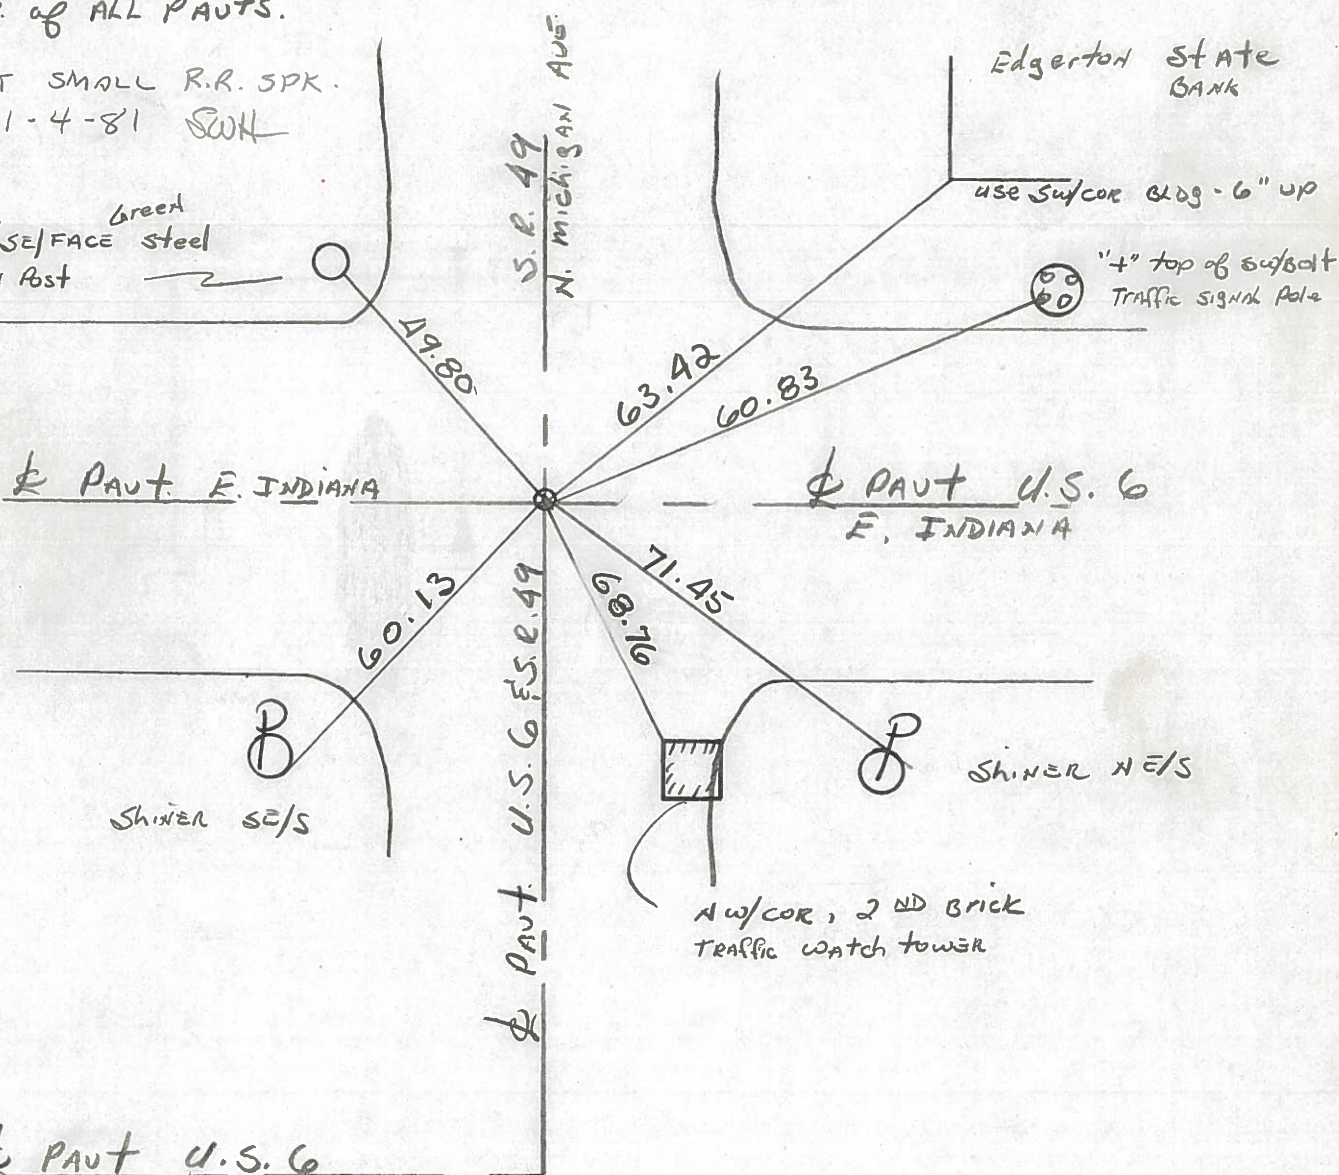 of ALL PAVTS.
SMALL R.R. SPK.
1-4-81 SWH
Green
SE/FACE Steel
Post
S.R. 49
N. Michigan AVE.
Edgerton State
BANK
USE SW/COR BLDG - 6" UP
"+" top of SW/Bolt
Traffic Signal Pole
49.80
63.42
60.83
℄ PAVT. E. INDIANA
℄ PAVT U.S. 6
E. INDIANA
60.13
68.76
71.45
℄ PAVT. U.S. 6 & S.R. 49
P
P
Shiner SE/S
Shiner NE/S
NW/COR, 2ND Brick
Traffic Watch Tower
PAVT U.S. 6